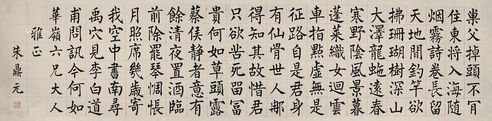 巢父掉頭不肯
住東將入海隨
烟霧詩卷長留
天地間釣竿欲
拂珊瑚樹深山
大澤龍虵遠春
寒野陰風景暮
蓬萊織女迴雲
車指點虛無是
征路自是君身
有仙骨世人那
得知其故惜君
只欲苦死留富
貴何如草頭露
蔡侯靜者意有
餘清夜置酒臨
前除罷琴惆悵
月照席幾歲寄
我空中書南尋
禹穴見李白道
甫問訊今何如
華嶺六兄大人
雅正
朱鼎元